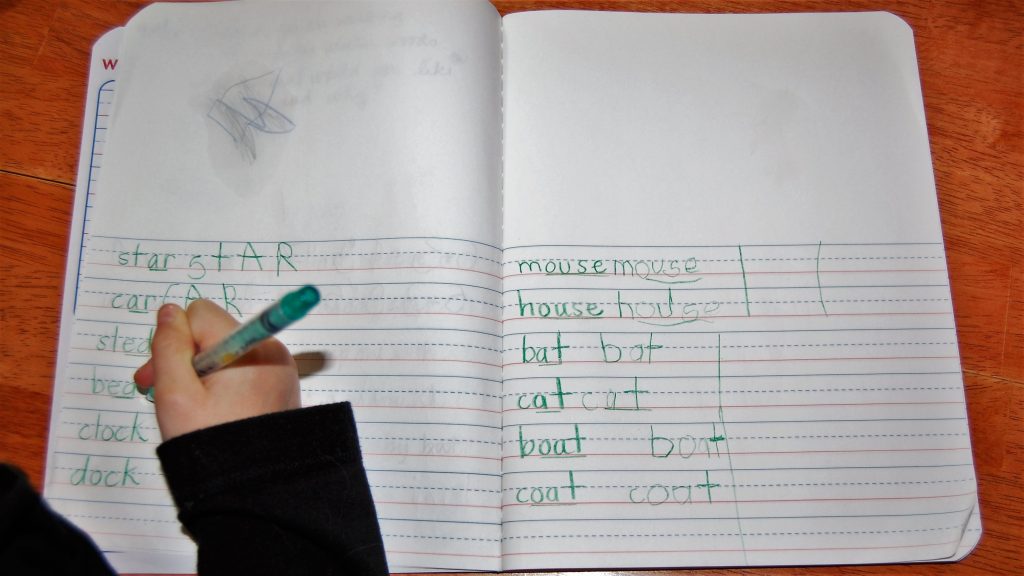 star stAR
car cAR
sled
bed
clock
dock
mouse mouse
house house
bat bat
cat cat
boat boat
coat coat